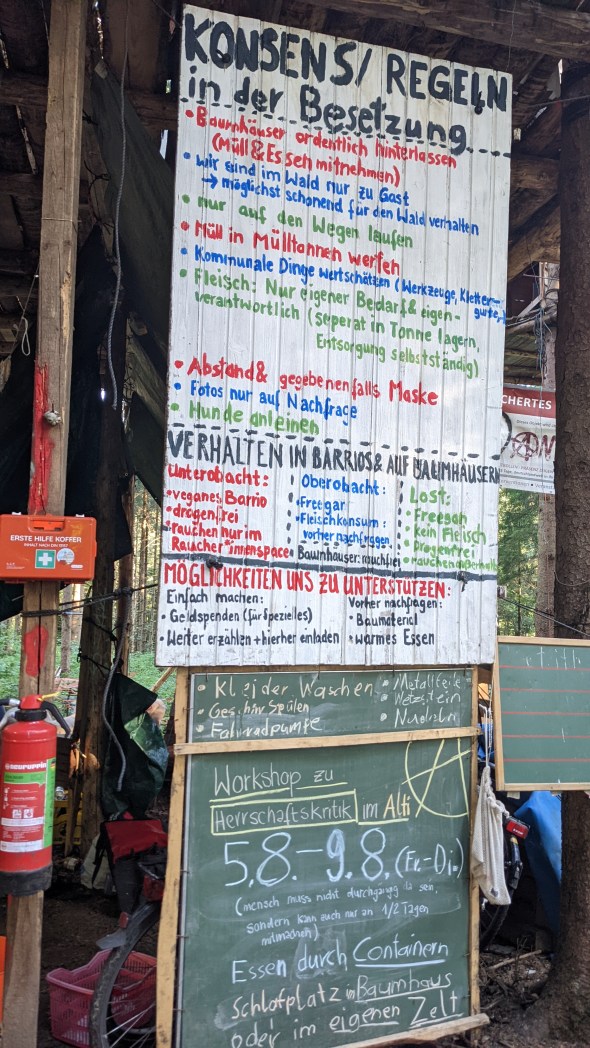 KONSENS/REGELN
in der Besetzung
• Baumhäuser ordentlich hinterlassen
(Müll & Essen mitnehmen)
• wir sind im Wald nur zu Gast
→ möglichst schonend für den Wald verhalten
• nur auf den Wegen laufen
• Müll in Mülltonnen werfen
• Kommunale Dinge wertschätzen (Werkzeuge, Kletter-
gurte,
• Fleisch: Nur eigener Bedarf & eigen-
verantwortlich (seperat in Tonne lagern,
Entsorgung selbstständig)
• Abstand & gegebenenfalls Maske
• Fotos nur auf Nachfrage
• Hunde anleinen
VERHALTEN IN BARRIOS & AUF BAUMHÄUSERN
Unterobacht:
• veganes Barrio
• drogenfrei
• rauchen nur im
Raucher*innenspace
Oberobacht:
• Freegan
• Fleischkonsum:
vorher nachfragen
• Baumhäuser: rauchfrei
Lost:
• Freegan
• Kein Fleisch
• Drogenfrei
• rauchen außerhalb
MÖGLICHKEITEN UNS ZU UNTERSTÜTZEN:
Einfach machen:
• Geldspenden (für spezielles)
• Weiter erzählen + hierher einladen
Vorher nachfragen:
• Baumaterial
• warmes Essen
• Kleider Waschen
• Geschirr Spülen
• Fahrradpumpe
• Metallteile
• Wetzstein
Workshop zu
Herrschaftskritik im Alti
5.8.-9.8. (Fr.-Di.)
(mensch muss nicht durchgängig da sein,
sondern kann euch nur an 1/2 Tagen
mitmachen)
Essen durch Containern
Schlafplatz in Baumhaus
oder im eigenen Zelt
ERSTE HILFE KOFFER
INHALT NACH DIN 13157
NEURUPPIN
CHERTES